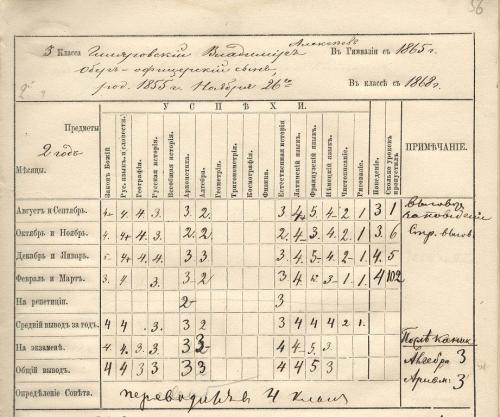 56
3 Класса Гиляровскій Владиміръ Алексѣев Въ Гимназіи съ 1865 г.
Обер-офицерскій сынъ,
род. 1855 г. Ноября 26го Въ классѣ съ 1868 г.
УСПѢХИ.
Предметы
2 годъ
Мѣсяцы.
Законъ Божій
Рус. языкъ и словестн.
Географія.
Русская исторія.
Всеобщая исторія.
Ариѳметика.
Алгебра.
Геометрія.
Тригонометрія.
Космографія.
Физика.
Естественная исторія
Латинскій языкъ.
Французскій языкъ.
Нѣмецкій языкъ.
Чистописаніе.
Рисованіе.
Поведеніе.
Сколько уроковъ пропустилъ
ПРИМѢЧАНІЕ.
Августъ и Сентябрь. 4 4 3 3 2 3 4 5 4 2 1 3 1 Выговоръ
за поведеніе
Октябрь и Ноябрь. 4 4 3 2 2 2 4 3 4 2 1 3 6 Стр. выгов.
Декабрь и Январь. 4 4 4 3 3 3 4 5 4 2 1 4 5
Февраль и Мартъ. 3 4 3 3 2 3 4 3 1 1 4 102
На репетиціи. 2 3
Средній выводъ за годъ. 4 4 3 3 2 3 4 4 4 2 1
На экзаменѣ. 4 4 3 3 3 4 4 5 3
Общій выводъ. 4 4 3 3 3 3 4 4 5 3
Послѣ каник.
Алгебра 3
Ариѳм. 3
Опредѣленіе Совѣта. переводитъ въ 4 классъ